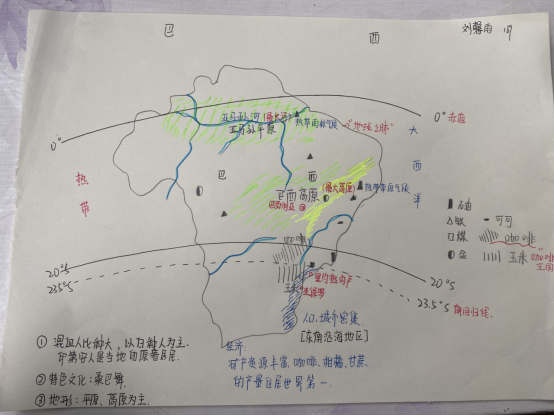 巴 西
刘馨雨 19
亚马孙河(最长河)
亚马孙平原
热带雨林气候—"地球之肺"
0°
0° 赤道
大西洋
热带
巴西
巴西高原(最大高原)
热带草原气候
巴西利亚
石油
△铁
可可
□煤
咖啡
金
玉米
咖啡王国
咖啡
20°S
23.5°S
20°S
23.5°S 南回归线
玉米
里约热内卢
圣保罗
人口、城市密集
[东南沿海地区]
经济:
矿产资源丰富、咖啡、柑橘、甘蔗、
的产量居世界第一.
① 混血人比例大,以白种人为主.
印第安人是当地的原著居民.
② 特色文化:桑巴舞.
③ 地形:平原、高原为主.